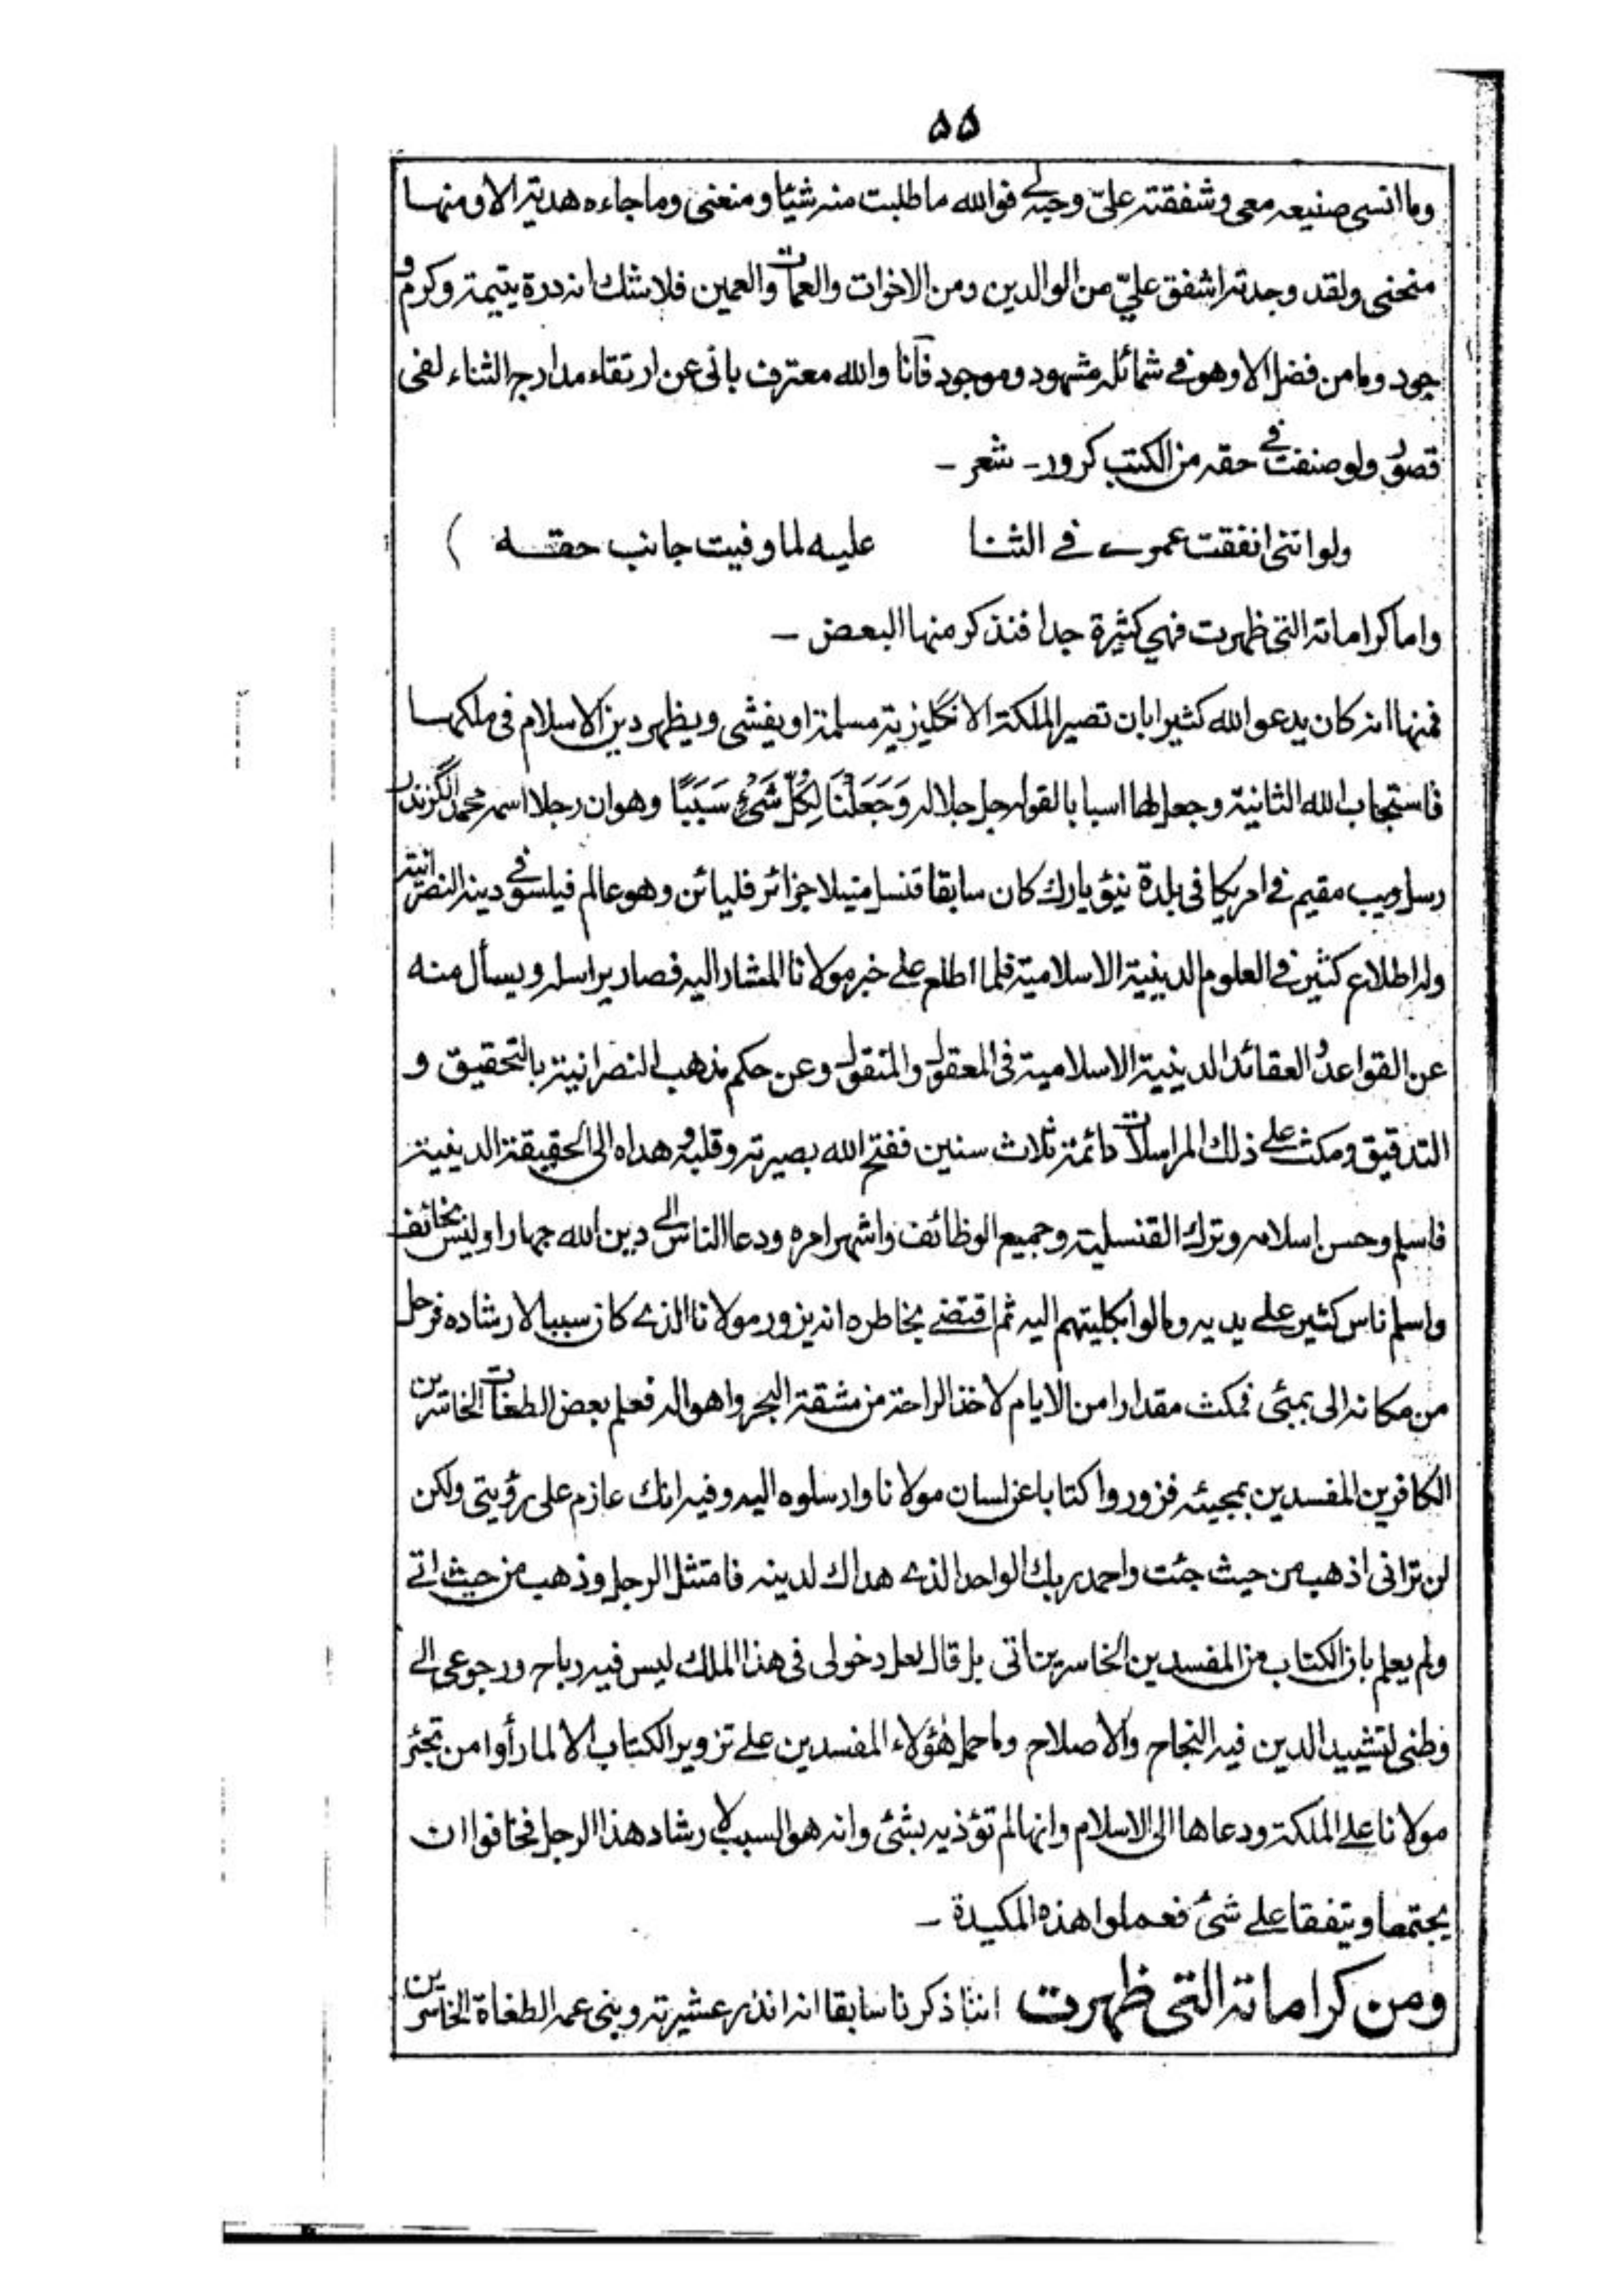 ۵۵
وما انسى صنيعه معى وشفقته علىّ وحبه لى فوالله ما طلبت منه شيئا ومنعنى وما جاءه هدية الا ومنها
منحنى ولقد وجدته اشفق علىّ من الوالدين ومن الاخوات والعمات والعمين فلا شك انه درة يتيمة وكرم و
جود وما من فضل الا وهو فى شمائله مشهود وموجود فانا والله معترف بانى عن ارتقاء مدارج الثناء لفى
قصور ولو صنفت فى حقه من الكتب كرور ـ شعر ـ
ولو اننى انفقت عمرى فى الثنا عليه لما وفيت جانب حقه )
واما كراماته التى ظهرت فهى كثيرة جدا فنذكر منها البعض ـ
فمنها انه كان يدعو الله كثيرا بان تصير الملكة الانكليزية مسلمة او يفشى ويظهر دين الاسلام فى ملكها
فاستجاب الله الثانية وجعل لها اسبابا لقوله جل جلاله وَجَعَلْنَا لِكُلِّ شَىْءٍ سَبَبًا وهو ان رجلا اسمه محمد الگزندر
رسل ويب مقيم فى امريكا فى بلدة نيؤيارك كان سابقا قنسل منيلا جزائر فليائن وهو عالم فيلسوفى دينه النصرانية
وله اطلاع كثير فى العلوم الدينية الاسلامية فلما اطلع على خبر مولانا المشار اليه فصار يراسله ويسأل منه
عن القواعد و العقائد الدينية الاسلامية فى المعقول والمنقول وعن حكم مذهب النصرانية بالتحقيق و
التدقيق ومكث على ذلك المراسلات دائمة ثلاث سنين ففتح الله بصيرته وقلبه و هداه الى الحقيقة الدينية
فاسلم وحسن إسلامه وترك القنسلية وجميع الوظائف واشهر امره ودعا الناس الى دين الله جهارا وليس بخائف
واسلم ناس كثير على يديه ومالوا بكليتهم اليه ثم اقتضى بخاطره انه يزور مولانا الذى كان سببا لارشاده فرحل
من مكانه الى بمبئى فمكث مقدارا من الايام لاخذ الراحة من مشقة البحر واهواله فعلم بعض الطغات الخاسرين
الكافرين المفسدين بمجيئه فزوروا كتابا عن لسان مولانا وارسلوه اليه وفيه انك عازم على رؤيتى ولكن
لن ترانى اذهب من حيث جئت واحمد ربك الواحد الذى هداك لدينه فامتثل الرجل وذهب من حيث اتى
ولم يعلم بان الكتاب من المفسدين الخاسرين اتى بل قال لعل دخولى فى هذا الملك ليس فيه رباح ورجوعى الى
وطنى لتشييد الدين فيه النجاح والاصلاح وما حمل هٰؤلاء المفسدين على تزوير الكتاب الا لما رأوا من تجئر
مولانا على الملكة ودعاها الى الاسلام وانها لم تؤذيه بشئى وانه هو السبب لارشاد هذا الرجل فخافوا ان
يجتمعا ويتفقا على شئ فعملوا هذه المكيدة ـ
ومن كراماته التى ظهرت اننا ذكرنا سابقا انه انذر عشيرته وبنى عمه الطغاة الخاسرين